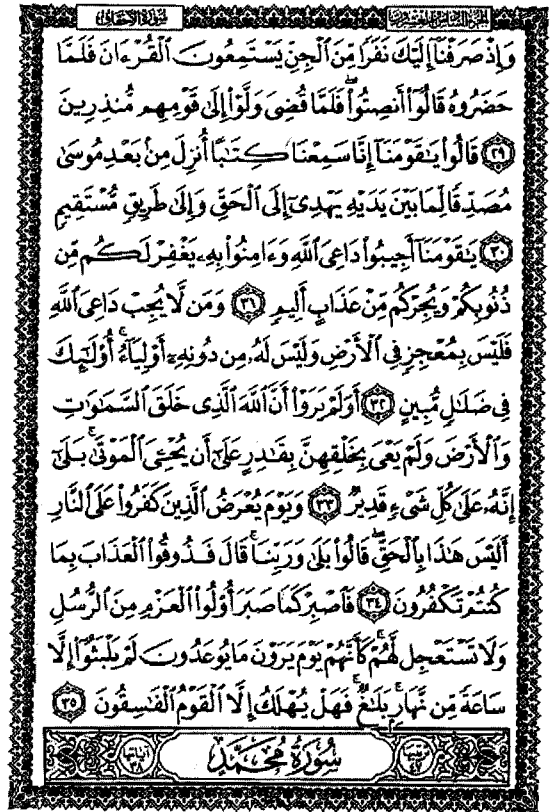 الجزء السادس والعشرون
سورة الأحقاف
وَإِذْ صَرَفْنَآ إِلَيْكَ نَفَرًا مِّنَ ٱلْجِنِّ يَسْتَمِعُونَ ٱلْقُرْءَانَ فَلَمَّا
حَضَرُوهُ قَالُوٓا۟ أَنصِتُوا۟ ۖ فَلَمَّا قُضِىَ وَلَّوْا۟ إِلَىٰ قَوْمِهِم مُّنذِرِينَ
٢٩ قَالُوا۟ يَٰقَوْمَنَآ إِنَّا سَمِعْنَا كِتَٰبًا أُنزِلَ مِنۢ بَعْدِ مُوسَىٰ
مُصَدِّقًا لِّمَا بَيْنَ يَدَيْهِ يَهْدِىٓ إِلَى ٱلْحَقِّ وَإِلَىٰ طَرِيقٍ مُّسْتَقِيمٍ
٣٠ يَٰقَوْمَنَآ أَجِيبُوا۟ دَاعِىَ ٱللَّهِ وَءَامِنُوا۟ بِهِۦ يَغْفِرْ لَكُم مِّن
ذُنُوبِكُمْ وَيُجِرْكُم مِّنْ عَذَابٍ أَلِيمٍ ٣١ وَمَن لَّا يُجِبْ دَاعِىَ ٱللَّهِ
فَلَيْسَ بِمُعْجِزٍ فِى ٱلْأَرْضِ وَلَيْسَ لَهُۥ مِن دُونِهِۦٓ أَوْلِيَآءُ ۚ أُو۟لَٰٓئِكَ
فِى ضَلَٰلٍ مُّبِينٍ ٣٢ أَوَلَمْ يَرَوْا۟ أَنَّ ٱللَّهَ ٱلَّذِى خَلَقَ ٱلسَّمَٰوَٰتِ
وَٱلْأَرْضَ وَلَمْ يَعْىَ بِخَلْقِهِنَّ بِقَٰدِرٍ عَلَىٰٓ أَن يُحْۦِىَ ٱلْمَوْتَىٰ ۚ بَلَىٰٓ
إِنَّهُۥ عَلَىٰ كُلِّ شَىْءٍ قَدِيرٌ ٣٣ وَيَوْمَ يُعْرَضُ ٱلَّذِينَ كَفَرُوا۟ عَلَى ٱلنَّارِ
أَلَيْسَ هَٰذَا بِٱلْحَقِّ ۖ قَالُوا۟ بَلَىٰ وَرَبِّنَا ۚ قَالَ فَذُوقُوا۟ ٱلْعَذَابَ بِمَا
كُنتُمْ تَكْفُرُونَ ٣٤ فَٱصْبِرْ كَمَا صَبَرَ أُو۟لُوا۟ ٱلْعَزْمِ مِنَ ٱلرُّسُلِ
وَلَا تَسْتَعْجِل لَّهُمْ ۚ كَأَنَّهُمْ يَوْمَ يَرَوْنَ مَا يُوعَدُونَ لَمْ يَلْبَثُوٓا۟ إِلَّا
سَاعَةً مِّن نَّهَارٍۭ ۚ بَلَٰغٌ ۚ فَهَلْ يُهْلَكُ إِلَّا ٱلْقَوْمُ ٱلْفَٰسِقُونَ ٣٥
سُورَةُ مُحَمَّدٍ